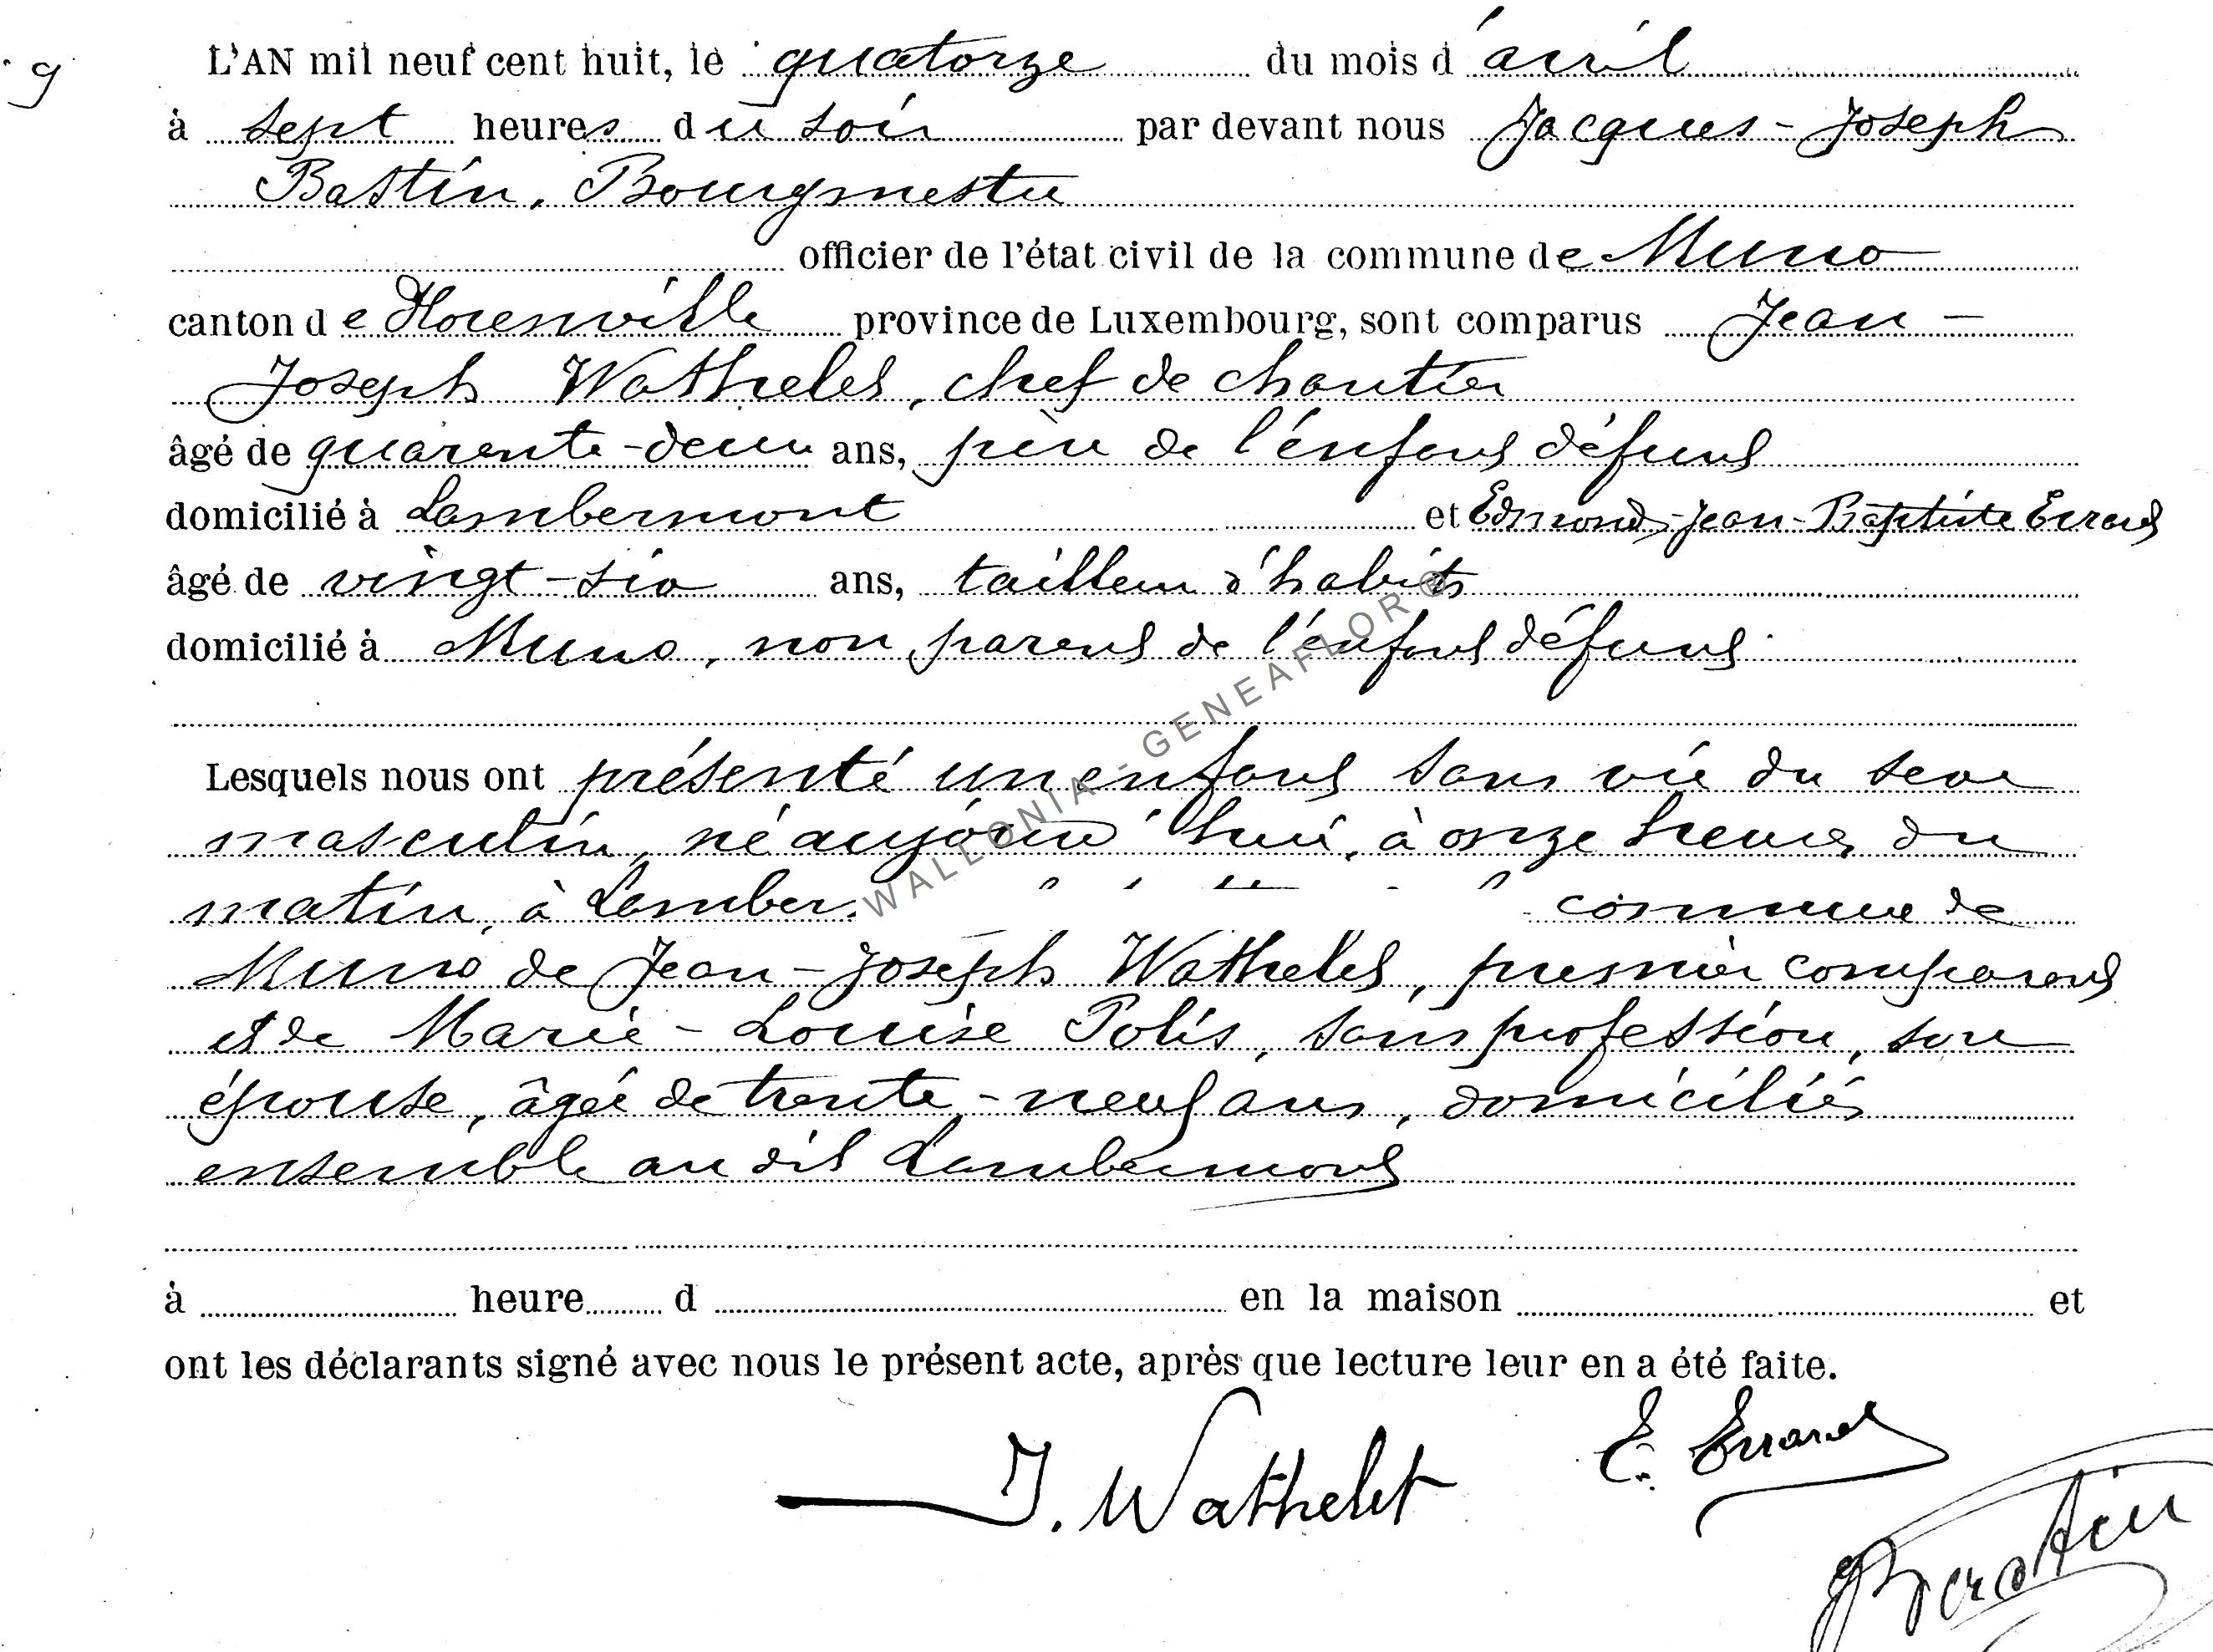 9
L'AN mil neuf cent huit, le quatorze du mois d'avril
à sept heures du soir par devant nous Jacques-Joseph
Bastin, Bourgmestre
officier de l'état civil de la commune de Muno
canton de Florenville province de Luxembourg, sont comparus Jean-
Joseph Wathelet, chef de chantier
âgé de quarante-deux ans, père de l'enfant défunt
domicilié à Lambermont et Edmond-Jean-Baptiste Errard
âgé de vingt-six ans, tailleur d'habits
domicilié à Muno, non parent de l'enfant défunt
Lesquels nous ont présenté un enfant sans vie du sexe
masculin, né aujourd'hui, à onze heures du
matin, à Lamber commune de
Muno de Jean-Joseph Wathelet, premier comparant
et de Marie-Louise Polis, sans profession, son
épouse, âgée de trente-neuf ans, domiciliés
ensemble au dit Lambermont
à heure d en la maison et
ont les déclarants signé avec nous le présent acte, après que lecture leur en a été faite.
J. Wathelet E. Errard
JBastin
WALLONIA - GENEAFLOR ®